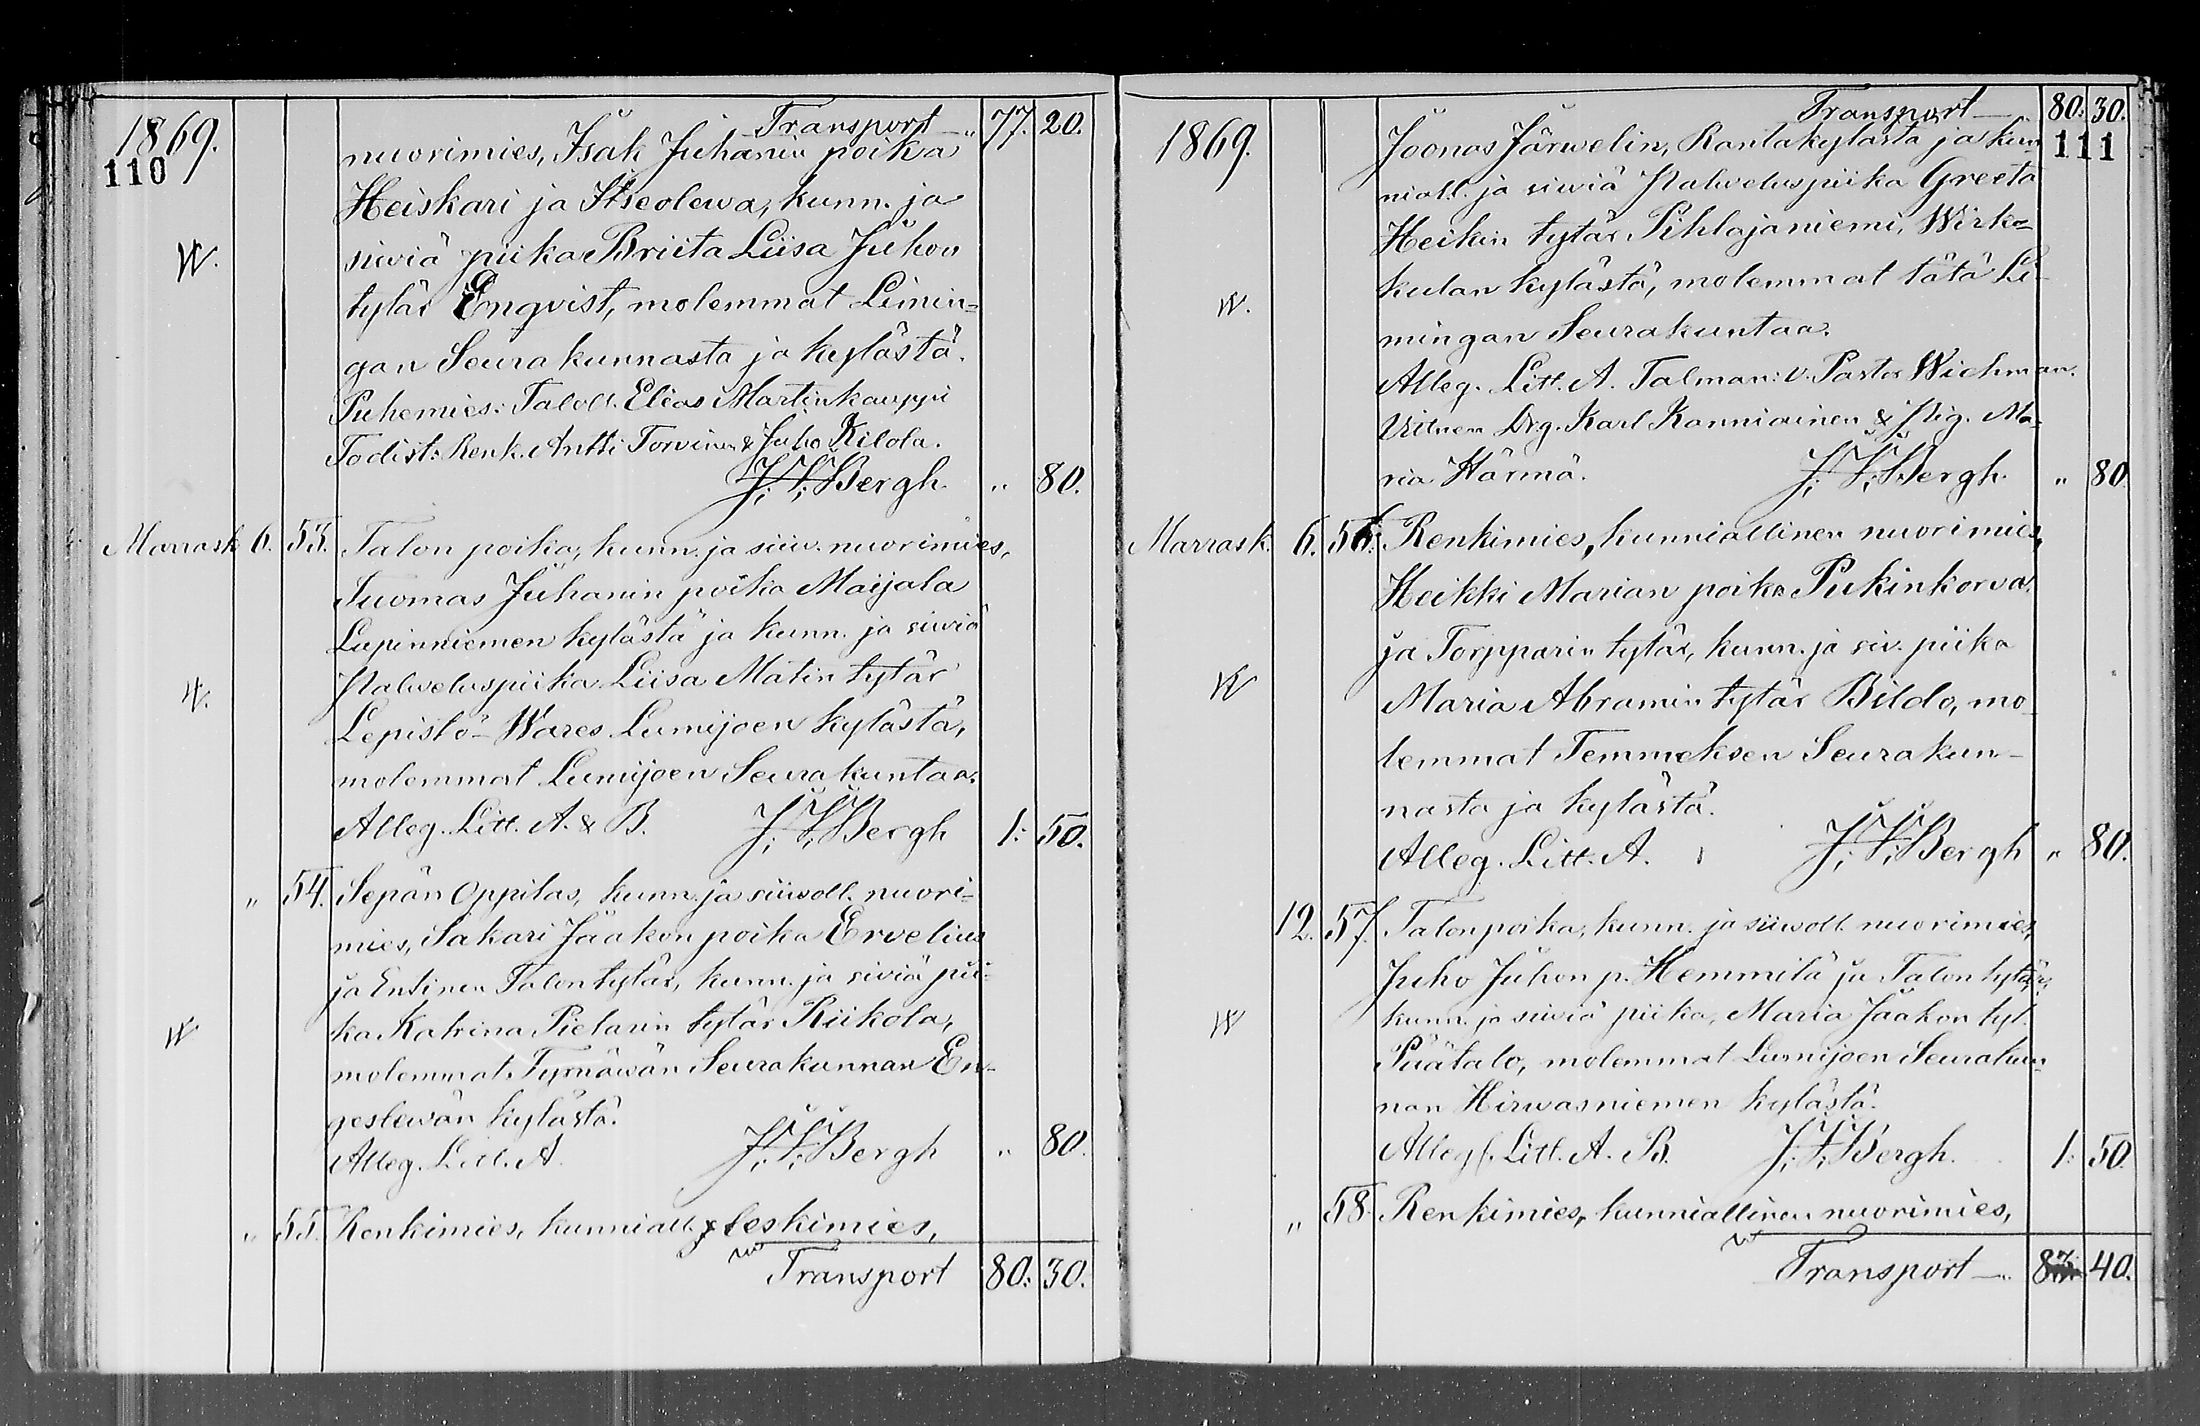 Transport " 77. 20.
1869.
110
nuorimies, Isak Juhanin poika
Heiskari ja Itseolewa, kunn. ja
siwiä piika Briita Liisa Juhon
W.
tytär Enqvist, molemmat Limin=
gan Seurakunnasta ja kylästä.
Puhemies: Taloll. Elias Martinkauppi
Todist: Renk. Antti Torvinen & Juho Kilola.
J. V. Bergh. " 80.
Marrask. 6. 53. Talon poika, kunn. ja siiw. nuorimies,
Tuomas Juhanin poika Maijala
Lapinniemen kylästä ja kunn. ja siwiä
Palweluspiika Liisa Matin tytär
W.
Lepistö-Wares Lumijoen kylästä,
molemmat Lumijoen Seurakuntaa.
Alleg. Litt. A. & B. J. V. Bergh 1: 50.
" 54. Sepän Oppilas, kunn. ja siiwoll. nuori-
mies, Sakari Jaakon poika Ervelius
ja Entinen Talon tytär, kunn. ja siviä pii-
ka Katrina Pietarin tytär Riikola,
W
molemmat Tyrnäwän Seurakunnan En-
geslewän kylästä.
Alleg. Litt. A. J. V. Bergh " 80.
" 55. Renkimies, kunniall. leskimies,
Transport 80: 30.
Transport — 80: 30.
1869.
111
Joonas Järwelin, Rantakylästä ja kun
niall. ja siwiä Palweluspiika Greeta
Heikin tytär Pihlajaniemi, Wirka=
kulan kylästä, molemmat tätä Li-
W.
mingan Seurakuntaa.
Alleg. Litt. A. Talman: V. Pastor Wichman.
Vitnen Drg. Karl Kanniainen & Pig. Ma-
ria Härmä. J. V. Bergh. " 80
Marrask. 6. 56. Renkimies, kunniallinen nuorimies,
Heikki Marian poika Pukinkorva,
ja Torpparin tytär, kunn. ja siv. piika
W
Maria Abramin tytär Bildo, mo-
lemmat Temmeksen Seurakun-
nasta ja kylästä.
Alleg. Litt. A. J. V. Bergh " 80.
12. 57. Talonpoika, kunn. ja siiwoll. nuorimies,
Juho Juhon p. Hemmilä ja Talon tytär,
kunn. ja siiwiä piika, Maria Jaakon tyt.
W
Päätalo, molemmat Lumijoen Seurakun-
nan Hirwasniemen kylästä.
Alleg. Litt. A. B. J. V. Bergh. 1: 50.
" 58. Renkimies, kunniallinen nuorimies,
Transport — 40.